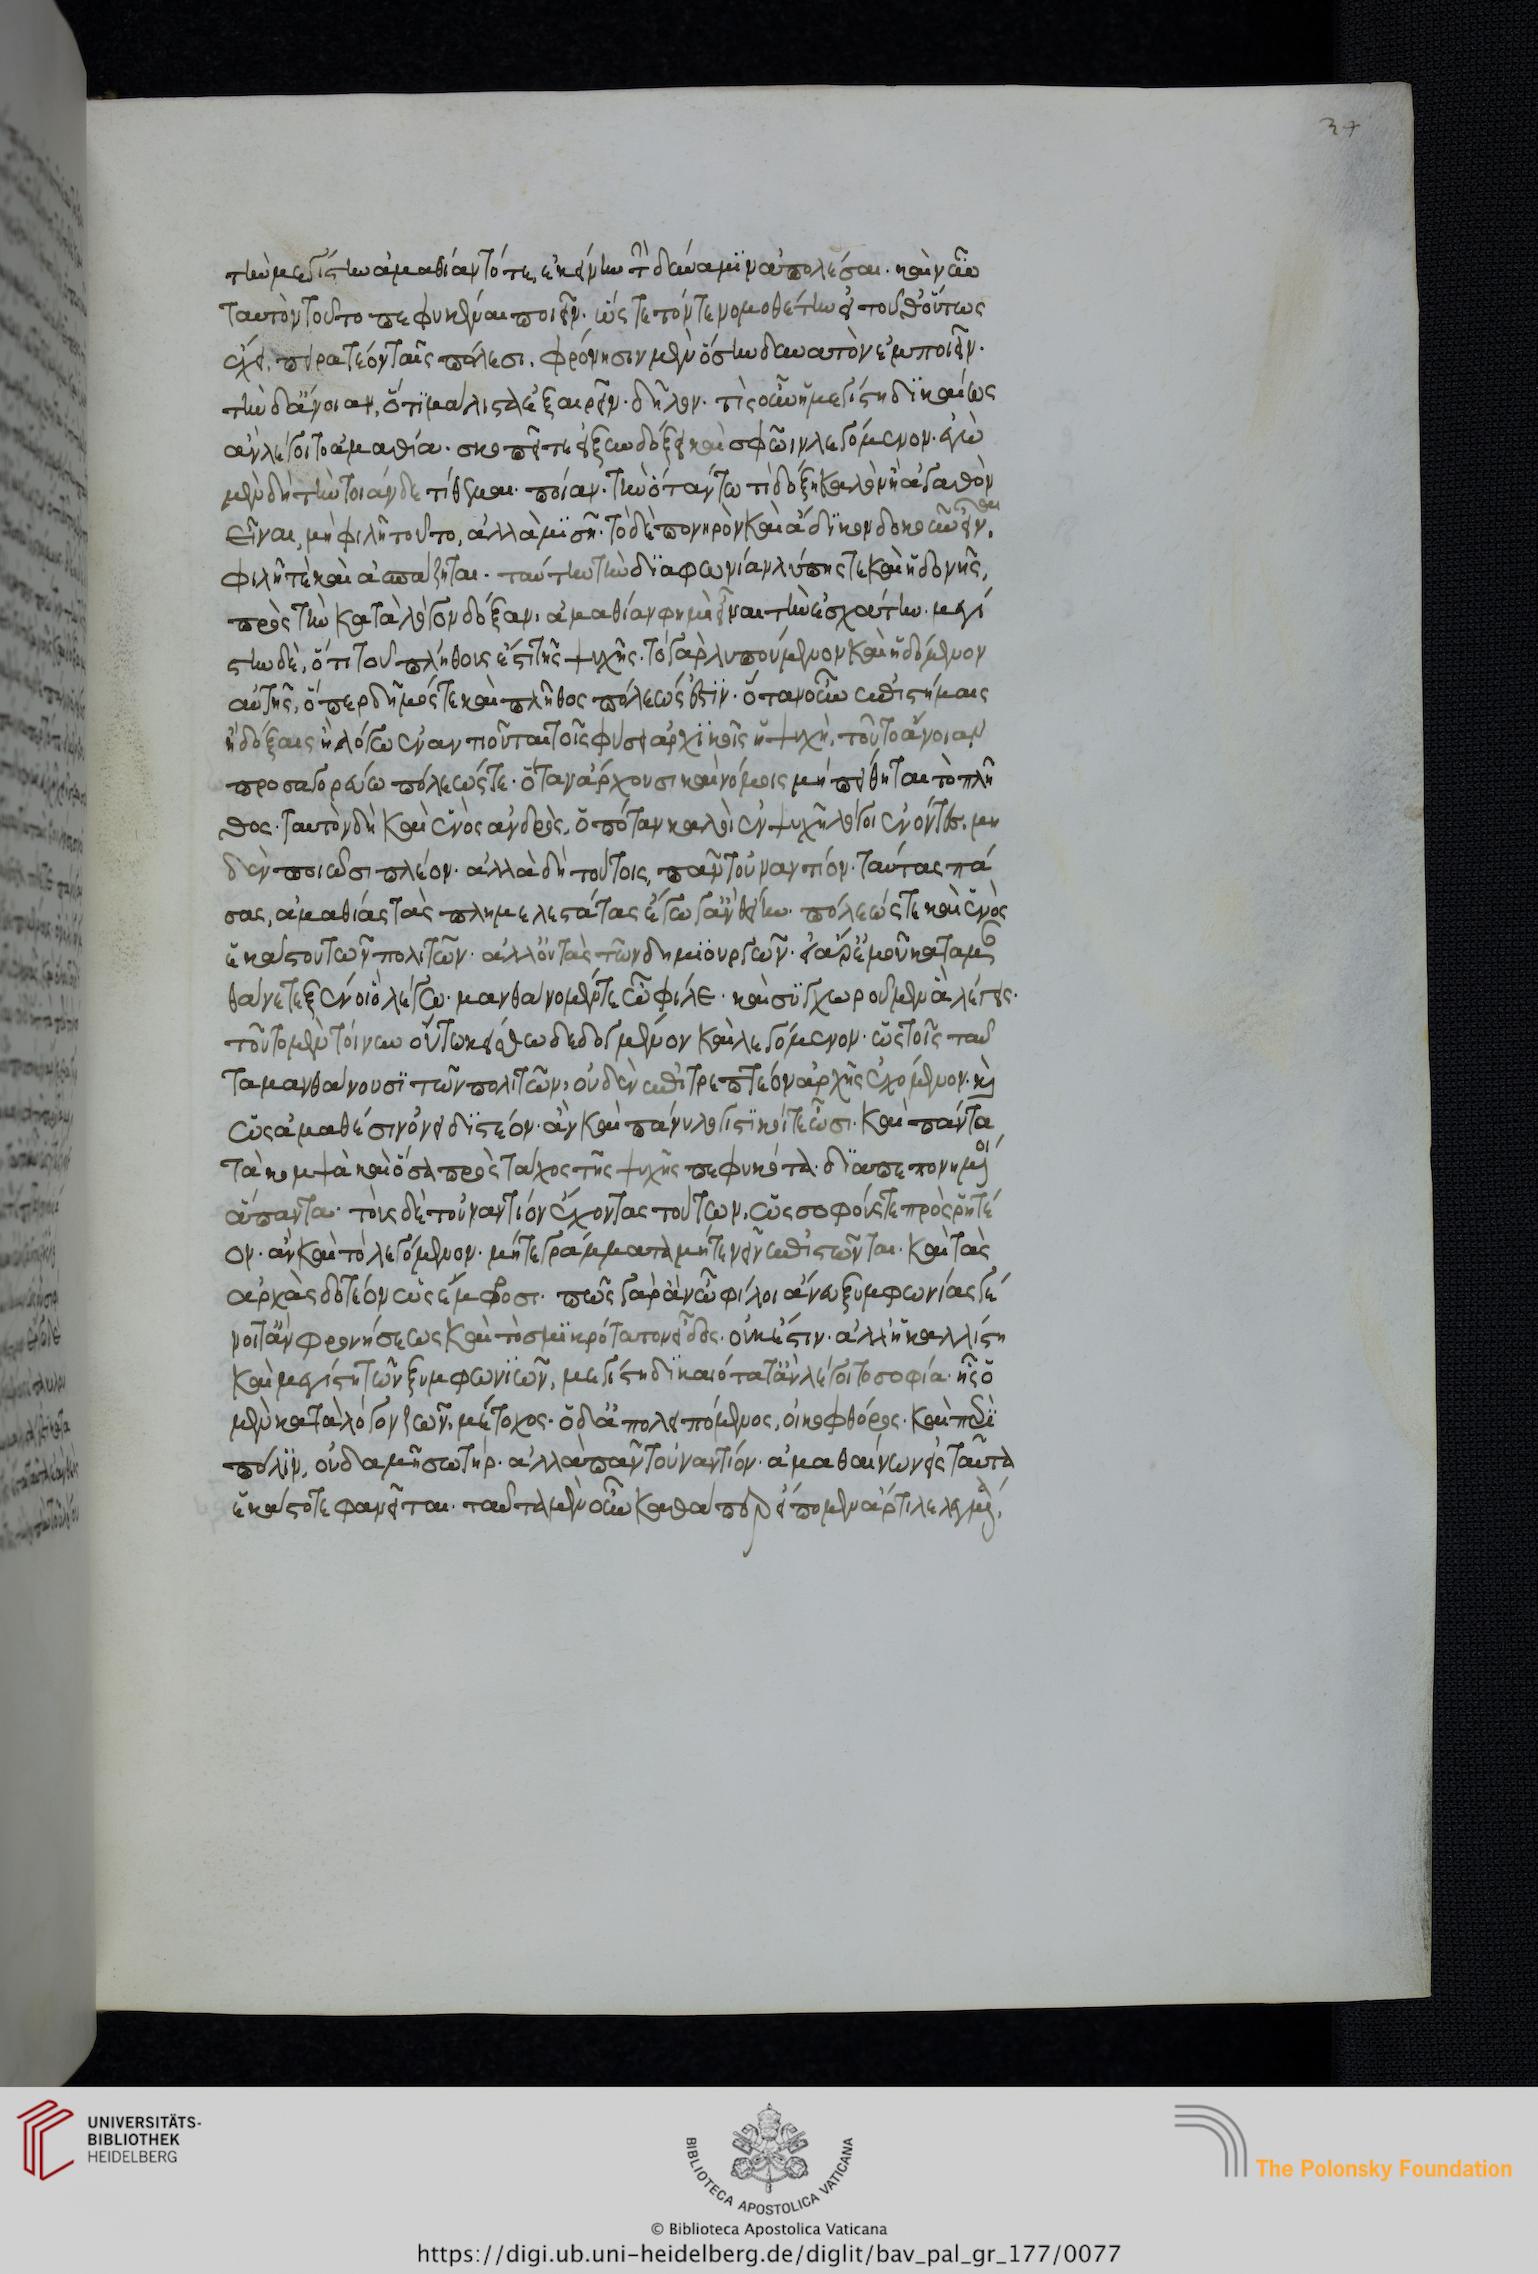 τὴν μεγίστην ἀμαθίαν τότε, ἐκείνην τὴν δύναμϊν ἀπολέσαι· καὶ νῦν
ταυτὸν τοῦτο πεφυκέναι ποιεῖν· ὥστε τόν γε νομοθέτην εἰ τοῦθ' οὕτως
ἔχει, πειρατέον ταῖς πόλεσι, φρόνησιν μὲν ὅσην δυνατὸν ἐμποιεῖν·
τὴν δ' ἄνοιαν, ὅτϊ μάλιστα ἐξαιρεῖν· δῆλον· τίς οὖν ἡ μεγίστη δϊκαίως
ἂν λέγοιτο ἀμαθία· σκοπεῖτε εἰ ξυνδόξει καὶ σφῶιν λεγόμενον· ἐγὼ
μὲν δὴ τὴν τοιάνδε τίθεμαι· ποίαν· τὴν ὅταν τῳ τὶ δόξῃ καλὸν ἢ ἀγαθὸν
εἶναι, μὴ φιλῇ τοῦτο, ἀλλὰ μϊσῇ· τὸ δὲ πονηρὸν καὶ ἄδϊκον δοκοῦν εἶναι,
φιλῇ τὲ καὶ ἀσπάζηται· ταύτην τὴν δϊαφωνίαν λύπης τε καὶ ἡδονῆς,
πρὸς τὴν κατὰ λόγον δόξαν, ἀμαθίαν φημὶ εἶναι τὴν ἐσχάτην· μεγί
στην δὲ, ὅτι τοῦ πλήθους ἐστὶ τῆς ψυχῆς· τὸ γὰρ λυπούμενον καὶ ἡδόμενον
αὐτῆς, ὅπερ δῆμός τε καὶ πλῆθος πόλεώς ἐστϊν· ὅταν οὖν ἐπιστήμαις
ἢ δόξαις ἢ λόγῳ ἐναντιοῦται τοῖς φύσει ἀρχϊκοῖς ἡ ψυχὴ, τοῦτο ἄνοιαν
προσαγορεύω πόλεώς τε· ὅταν ἄρχουσι καὶ νόμοις μὴ πείθηται τὸ πλῆ
θος· ταυτὸν δὴ καὶ ἑνὸς ἀνδρὸς, ὁπόταν καλοὶ ἐν ψυχῇ λόγοι ἐνόντες, μη
δὲν ποιῶσι πλέον· ἀλλὰ δὴ τούτοις, πᾶν τοὐναντίον· ταύτας πά
σας, ἀμαθίας τὰς πλημμελεστάτας ἔγωγ' ἂν θείην· πόλεώς τε καὶ ἑνὸς
ἑκάστου τῶν πολιτῶν· ἀλλ' οὐ τὰς τῶν δημϊουργῶν· εἰ ἄρ' ἐμοῦ καταμαν
θάνετε ξένοι ὃ λέγω· μανθάνομέν τε ὦ φίλε· καὶ συϊγχωροῦμεν ἃ λέγεις·
τοῦτο μὲν τοίνυν οὕτω κείσθω δεδογμένον καὶ λεγόμενον· ὡς τοῖς ταῦ
τα μανθάνουσϊ τῶν πολιτῶν, οὐδὲν ἐπιτρεπτέον ἀρχῆς ἐχόμενον· καὶ
ὡς ἀμαθέσιν ὀνειδϊστέον· ἂν καὶ πάνυ λογϊστϊκοί τε ὦσι· καὶ πάντα
τὰ κομψὰ καὶ ὅσα πρὸς τάχος τῆς ψυχῆς πεφυκότα· δϊαπεπονημένοι
ἅπαντα· τοὺς δὲ τοὐναντίον ἔχοντας τούτων, ὡς σοφούς τε προσρητέ
ον· ἂν καὶ τὸ λεγόμενον· μήτε γράμματα μήτε νεῖν ἐπιστῶνται· καὶ τὰς
ἀρχὰς δοτέον ὡς ἔμφροσι· πῶς γὰρ ἂν ὦ φίλοι ἄνευ ξυμφωνίας γέ
νοιτ' ἂν φρονήσεως καὶ τὸ σμϊκρότατον εἶδος· οὐκ ἔστιν· ἀλλ' ἡ καλλίστη
καὶ μεγίστη τῶν ξυμφωνϊῶν, μεγίστη δϊκαιότατ' ἂν λέγοιτο σοφία· ἧς ὁ
μὲν κατὰ λόγον ζῶν, μέτοχος· ὁ δ' ἀπολειπόμενος, οἰκοφθόρος· καὶ περὶ
πόλϊν, οὐδαμῇ σωτὴρ· ἀλλὰ πᾶν τοὐναντίον· ἀμαθαίνων εἰς ταῦτα
ἑκάστοτε φανεῖται· ταῦτα μὲν οὖν καθάπερ εἴπομεν ἄρτι λελεγμένα,
37
UNIVERSITÄTS-
BIBLIOTHEK
HEIDELBERG
BIBLIOTECA APOSTOLICA VATICANA
The Polonsky Foundation
© Biblioteca Apostolica Vaticana
https://digi.ub.uni-heidelberg.de/diglit/bav_pal_gr_177/0077